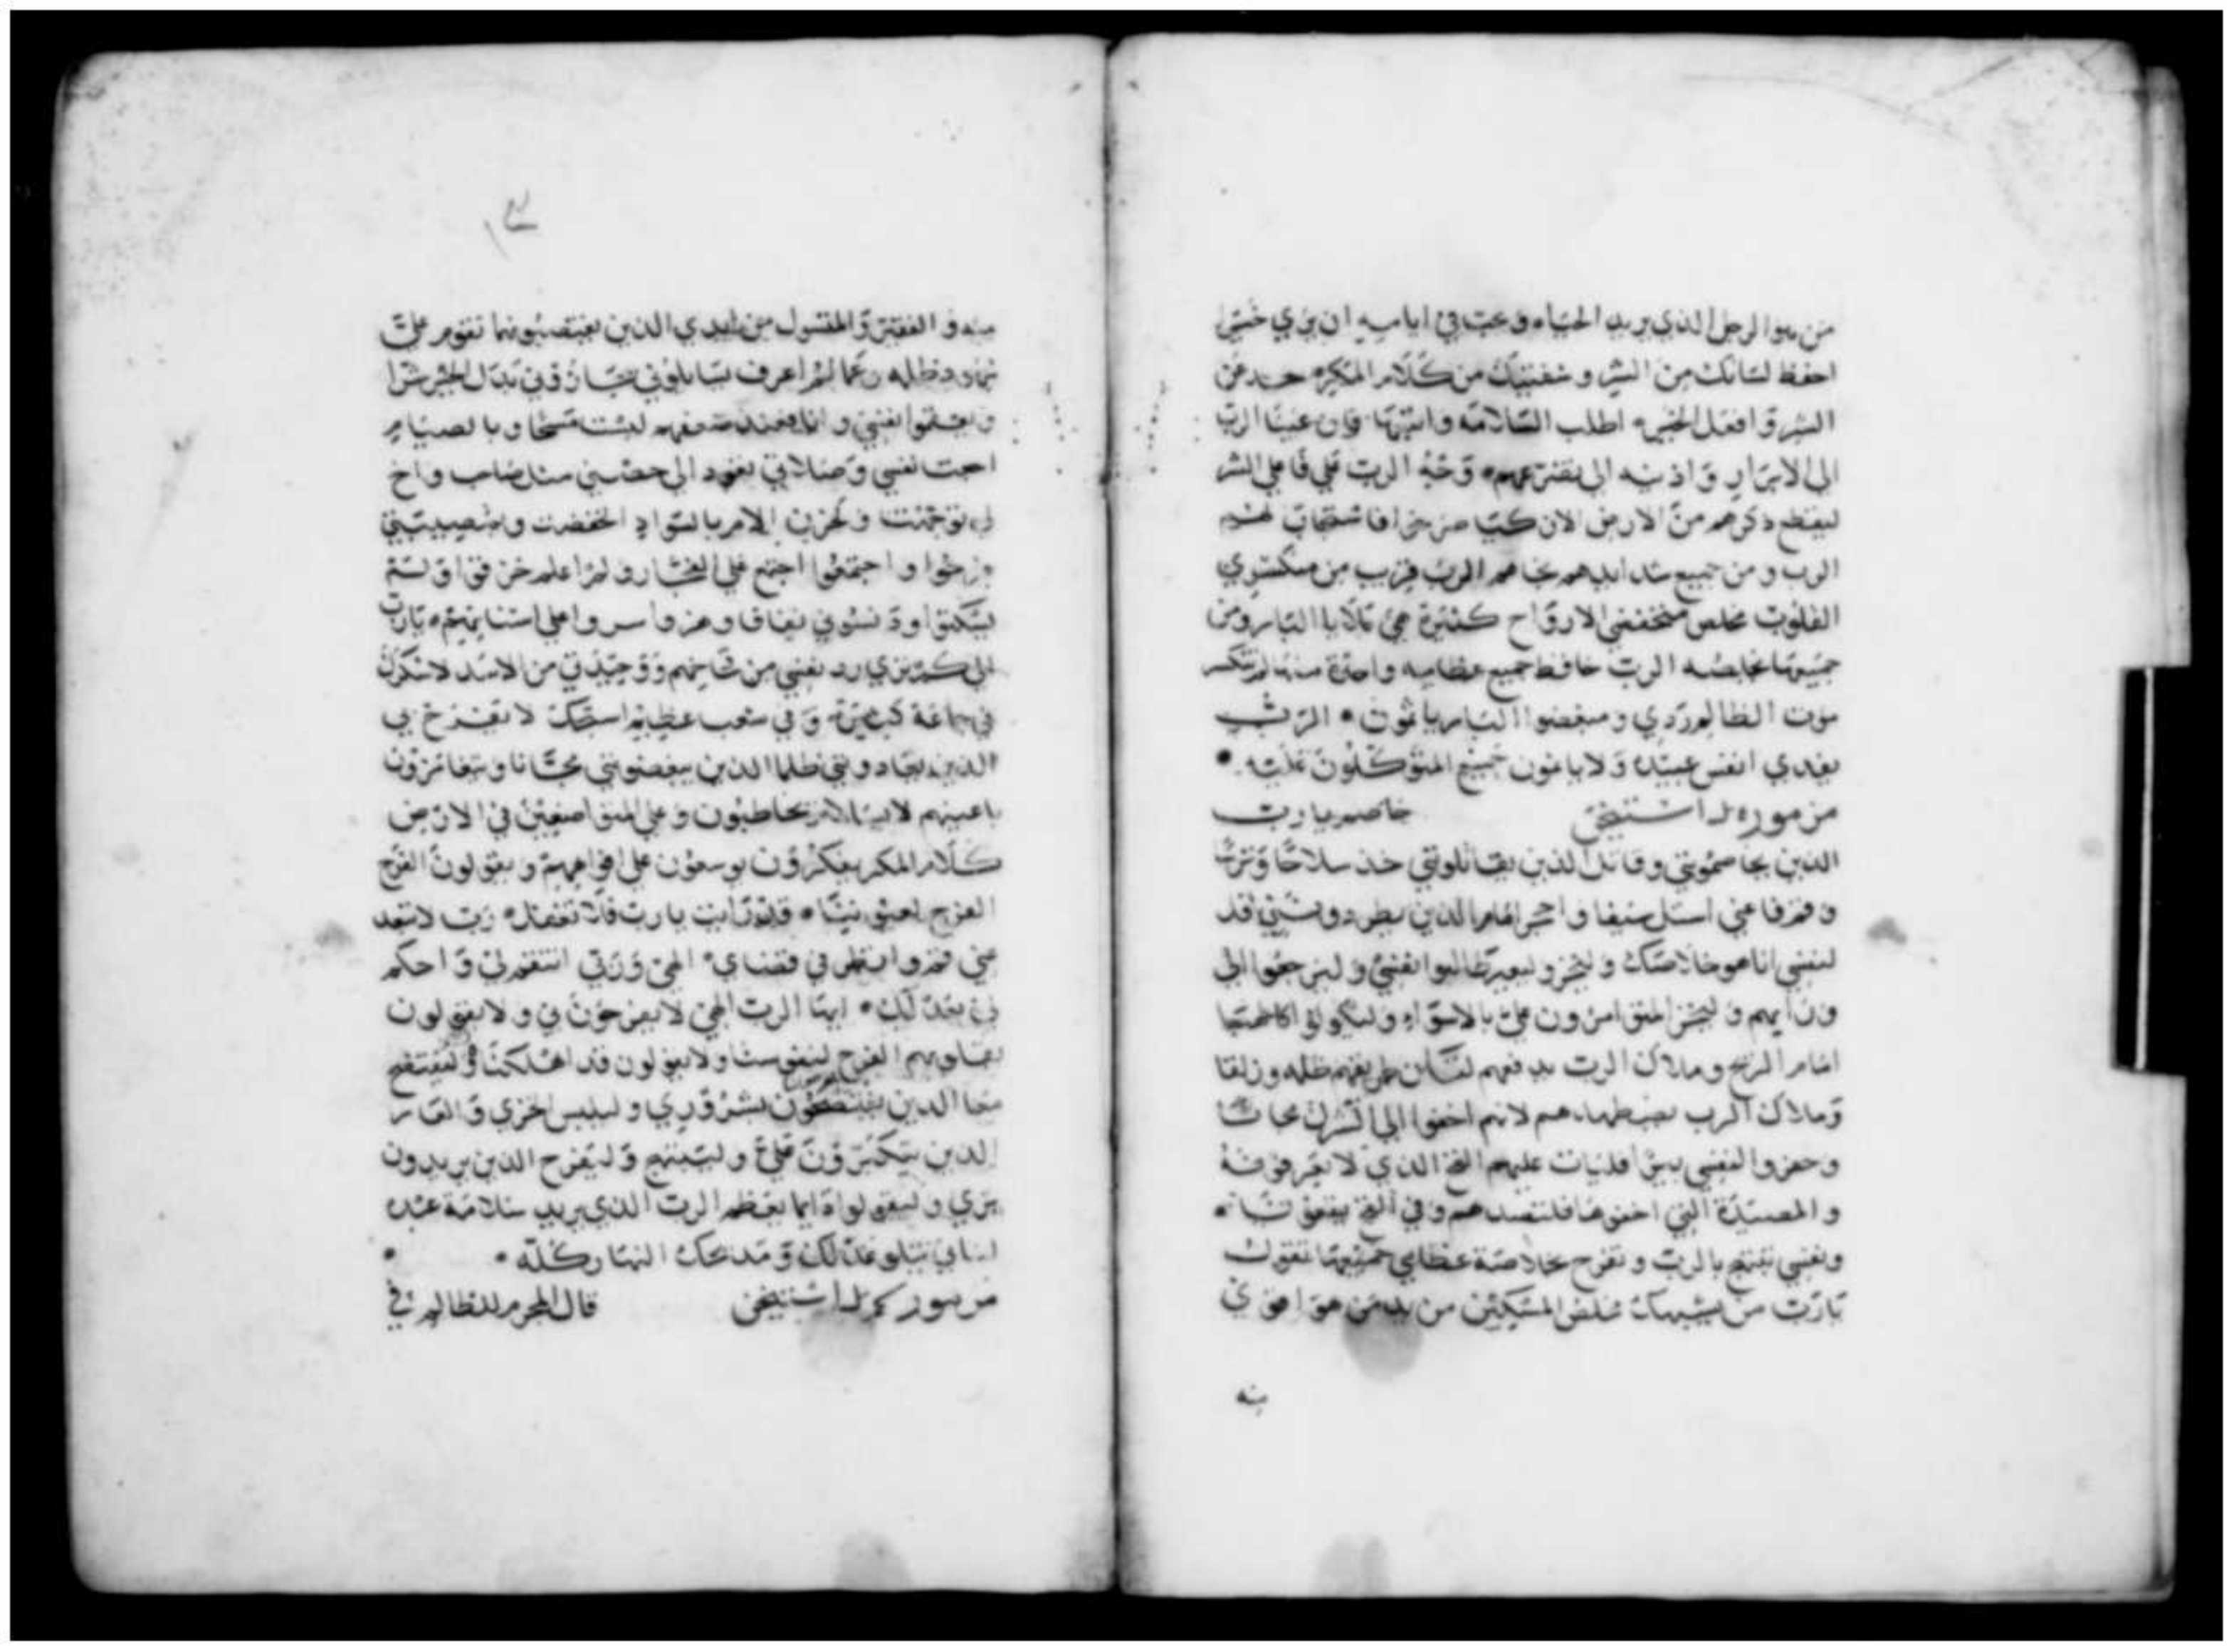 من هو الرجل الذي يريد الحياه ويحب في ايامه ان يري خيرا
احفظ لسانك من الشر وشفتيك من كلام المكر حد عن
الشر وافعل الخير اطلب السلامه واتبعها فان عينا الرب
الى الابرار واذنيه الى تضرعهم وجه الرب على فاعلي الشر
ليقطع ذكرهم من الارض الابرار صرخوا فاستجاب لهم
الرب ومن جميع شدايدهم نجاهم الرب قريب من منكسري
القلوب مخلص منخفضي الارواح كثيرة هي بلايا البار ومن
جميعها يخلصه الرب حافظ جميع عظامه واحدة منها لم تنكسر
موت الظالم ردي ومبغضوا البار ياثمون الرب
يفدي انفس عبيده ولا ياثمون جميع المتوكلون عليه
مزمور استيخن خاصم يا رب
الذين يخاصموني وقاتل الذين يقاتلوني خذ سلاحا وترسا
وقم في عني استل سيفا واحجر امام الذين يطردونني قل
لنفسي انا هو خلاصك وليخز وليبهر طالبوا نفسي وليرجعوا الى
ورايهم وليخز المتوامرون علي بالاسواء وليكونوا كالهبا
امام الريح وملاك الرب يدفعهم لتكن طريقهم ظلمه وزلقا
وملاك الرب يضطهدهم لانهم اخفوا لي الشرك مجانا
وحفروا لنفسي بيرا فليات عليهم الفخ الذي لا يعرفونه
والمصيدة التي اخفوها فلتصيدهم وفي الفخ يقعون
ونفسي تبتهج بالرب وتفرح بخلاصه عظامي جميعها تقول
يا رب من يشبهك مخلص المسكين من يد من هو اقوي
منه
منه والفقير والمسكين من ايدي الذين يغتصبونهما تقوم علي
شهود ظلمه وعما لم اعرف تسايلوني يجازوني بدل الخير شرا
وانا فعند ضعفهم لبست مسحا وبالصيام
نفسي وصلاتي تعود الى حضني مثل صاحب واخ
لي توجهت وكحزين الام بالسواد انخفضت وبمصيبتي
فرحوا واجتمعوا اجتمع علي الفجار ولم اعلم خرقوا ولم
يسكتوا نفاقا وهزوا صروا علي اسنانهم يا رب
الى كم تري رد نفسي من قبايحهم ووحيدتي من الاسد لاشكرك
في جماعة كبيرة وفي شعب عظيم اسبحك لا يفرح بي
الذين يعادونني ظلما الذين يبغضونني مجانا ويتغامزون
باعينهم لان بالسلام يخاطبون وعلى المتواضعين في الارض
كلام المكر يفكرون يوسعون علي افواههم ويقولون الفرح
الفرح لعيوننا قد رايت يا رب فلا تغفل رب لا تبعد
عني قم وانظر في قضاي الهي وربي انتقم لي واحكم
لي بعدلك ايها الرب الهي لا يفرحون بي ولا يقولون
بقلوبهم الفرح لنفوسنا ولا يقولون قد اهلكناه ليفتضح
معا الذين يفرحون بشروري وليلبس الخزي والعار
الذين يتكبرون علي وليبتهج وليفرح الذين يريدون
بري وليقولوا دايما يعظم الرب الذي يريد سلامة عبده
لساني يتلو عدلك ومدحك النهار كله
مزمور استيخن قال المجرم للظالم في